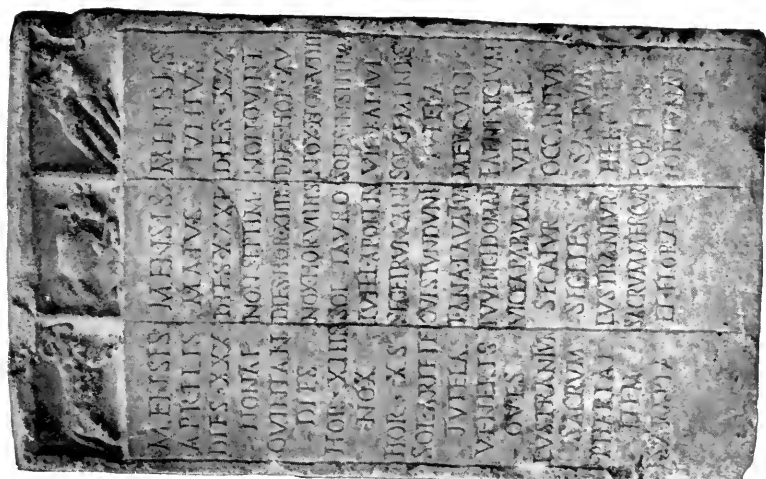 MENSIS
APRILIS
DIES·XXX
NONAE
QVINTANE
DIES
HOR·XIIIS
NOX
HOR·XS
SOL·ARIETE
TVTELA
VENERIS
OVES
LVSTRANTVR
SACRVM
PHARIAE
ITEM
SARAPIA
MENSIS
MAIVS
DIES·XXXI
NON·SEPTIM
DIES·HOR·XIIIIS
NOX·HOR·VIIIIS
SOL·TAVRO
TVTEL·APOLLIN
SEGET·RVNCANT
OVES·TVNDVNT
LANA·LAVATVR
IVVENCI·DOMANT
VICEA·PABVLAR
SECATVR
SEGETES
LVSTRANTVR
SACRVM·MERCVR
ET·FLORAE
MENSIS
IVNIVS
DIES·XXX
NON·QVINT
DIES·HOR·XV
NOX·HOR·VIIII
SOLIS·INSTITIVM
VIII·KAL·IVL
SOL·GEMINIS
TVTELA
MERCVRI
FAENISICIVM
OCCANTVR
SACRVM
HERCVLI
FORTIS
FORTVNAE